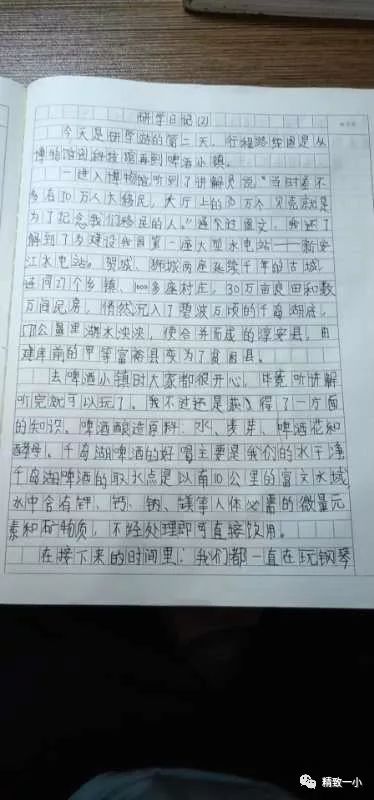 研学日记(2)
今天是研学游的第二天,行程路线图是从
博物馆到科技馆再到啤酒小镇。
一进入博物馆听到了讲解员说“当时差不
多有10万人大移民,大厅上的 万人 就是
为了纪念我们移民的人。”通过 图文,我还了
解到了为建设我国第一座大型水电站——新安
江水电站。贺城、狮城两座延续千年的古城,
连同27个乡镇、1000多座村庄,30万亩良田和数
万间民房,悄然沉入了碧波万顷的千岛湖底,
公里湖水泱泱,使合并而成的淳安县,由
建库前的甲等富裕县变为了贫困县。
去啤酒小镇时大家都很开心,毕竟听讲解
听完就可以玩了。我不过还是获得了一方面
的知识。啤酒酿造原料:水、麦芽、啤酒花和
酵母。千岛湖啤酒的好喝主要是我们的水干净
千岛湖啤酒的取水点是以南10公里的富文水域
水中含有钾、钙、钠、镁等人体必需的微量元
素和矿物质,不经处理即可直接饮用。
在接下来的时间里,我们都一直在玩钢琴
精致一小